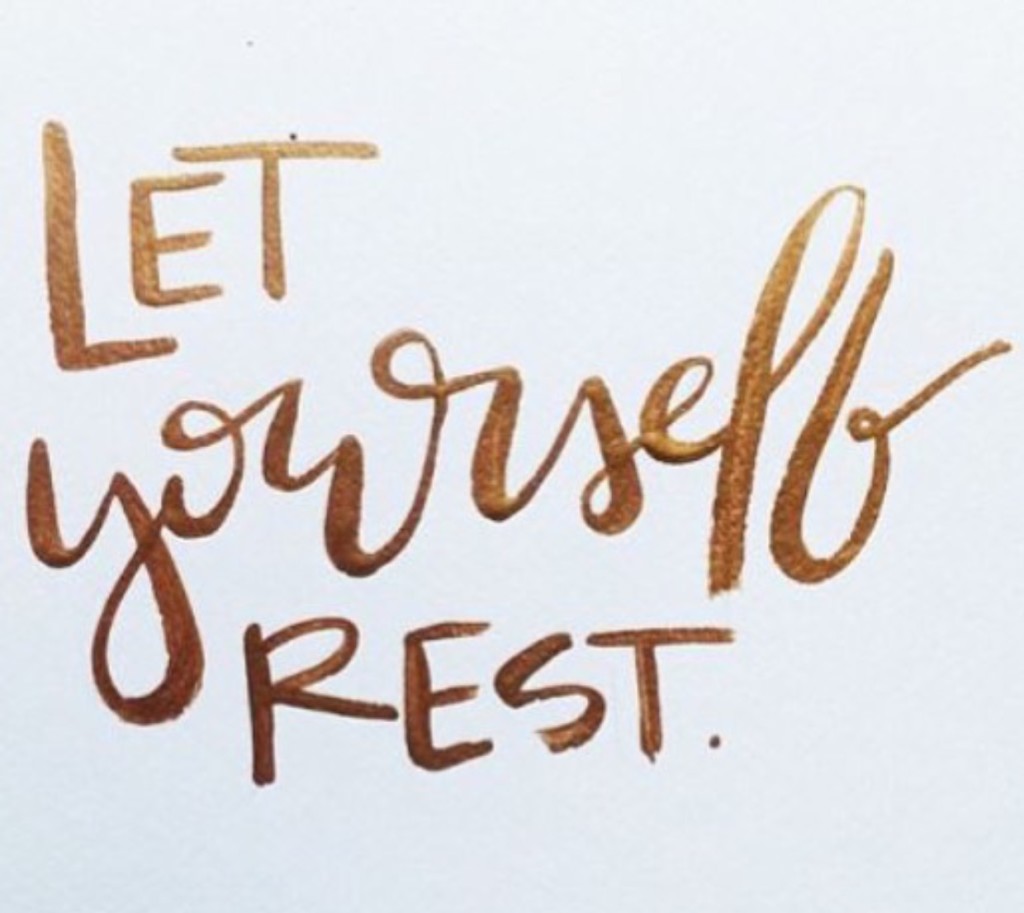 LET
yourself
REST.